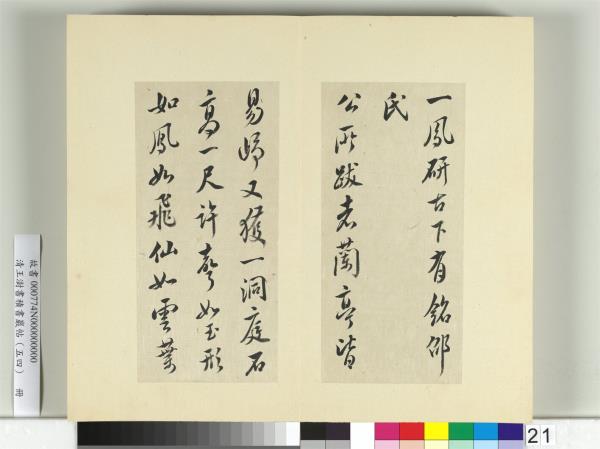 一鳳研古下有銘邵
氏
公所跋老蘭亭皆
易歸又獲一洞庭石
高一尺許聲如玉形
如鳳如飛仙如雲葉
故書000774N000000000
清王澍書積書巖帖（五四） 冊
21